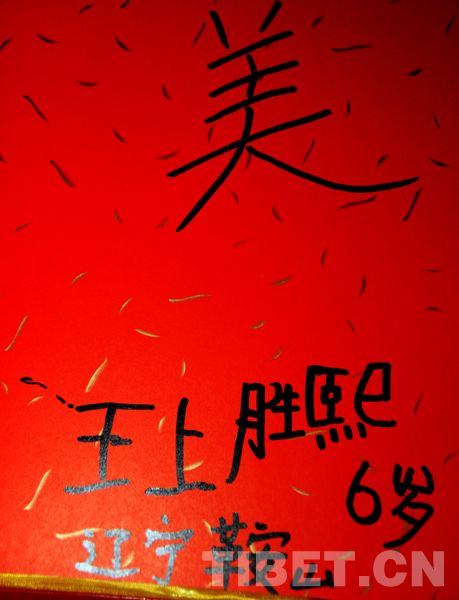 美
王上胜熙
6岁
辽宁鞍山
TIBET.CN